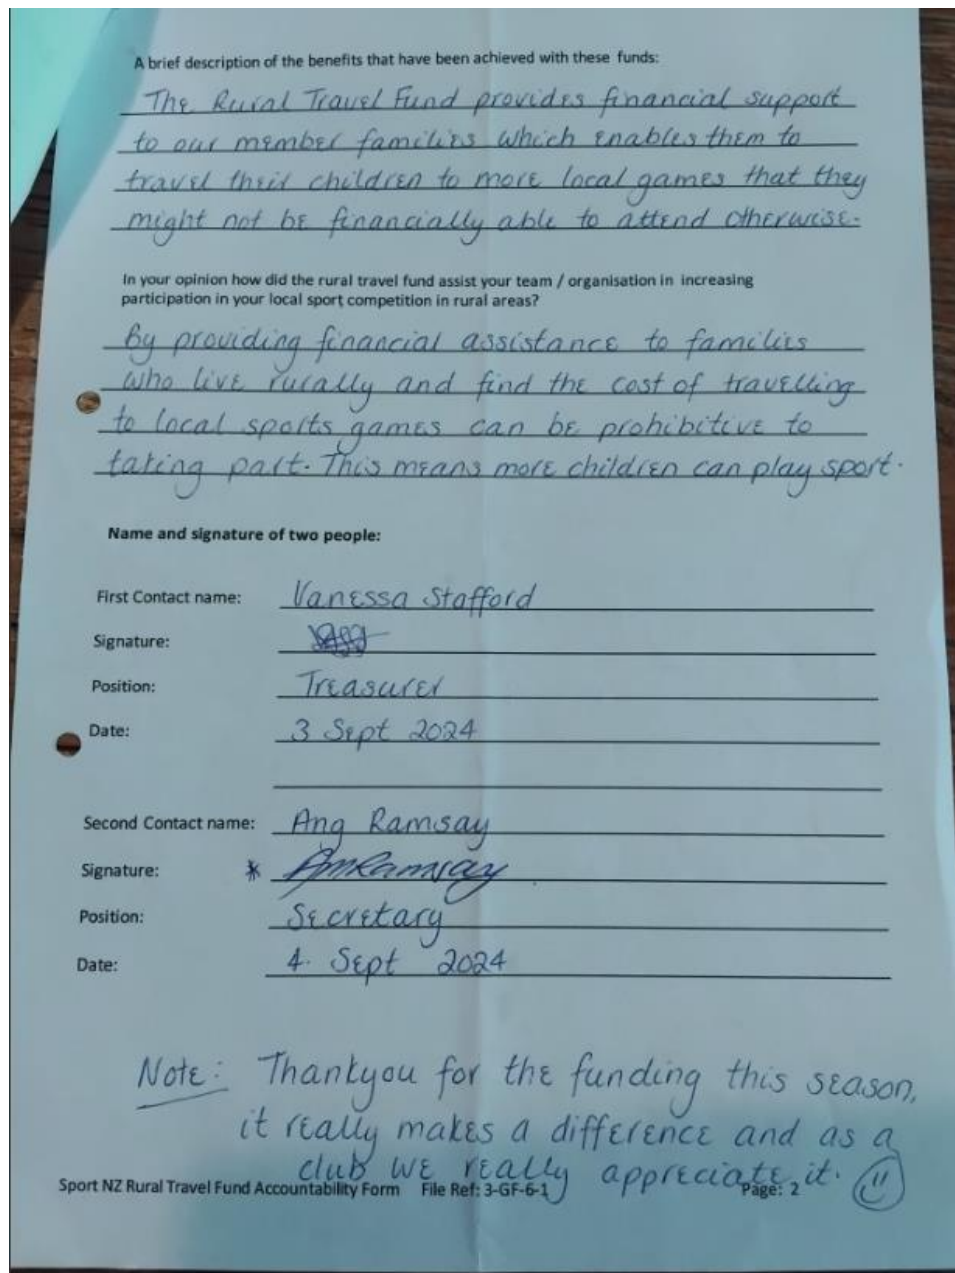 A brief description of the benefits that have been achieved with these funds:
The Rural Travel Fund provides financial support
to our member families which enables them to
travel their children to more local games that they
might not be financially able to attend otherwise.
In your opinion how did the rural travel fund assist your team / organisation in increasing
participation in your local sport competition in rural areas?
By providing financial assistance to families
who live rurally and find the cost of travelling
to local sports games can be prohibitive to
taking part. This means more children can play sport.
Name and signature of two people:
First Contact name: Vanessa Stafford
Signature:
Position: Treasurer
Date: 3 Sept 2024
Second Contact name: Ang Ramsay
Signature: * AmRamsay
Position: Secretary
Date: 4. Sept 2024
Note: Thankyou for the funding this season,
it really makes a difference and as a
club we really appreciate it.
Sport NZ Rural Travel Fund Accountability Form File Ref: 3-GF-6-1 Page: 2